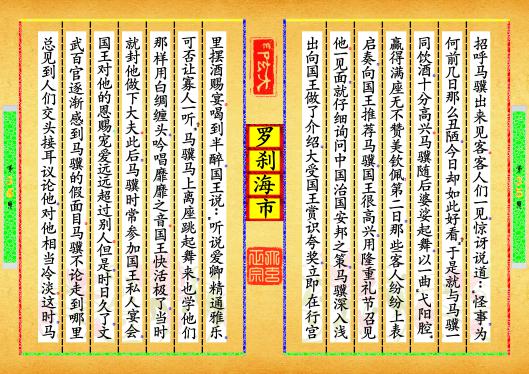 招呼马骥出来见客客人们一见惊讶说道：怪事为
何前几日那么丑陋今日却如此好看，于是就与马骥一
同饮酒十分高兴马骥随后婆娑起舞以一曲弋阳腔
赢得满座无不赞美钦佩第二日那些客人纷纷上表
启奏向国王推荐马骥国王很高兴用隆重礼节召见
他一见面就仔细询问中国治国安邦之策马骥深入浅
出向国王做了介绍大受国王赏识夸奖立即在行宫
罗刹海市
里摆酒赐宴喝到半醉国王说：听说爱卿精通雅乐
可否让寡人一听，马骥马上离座跳起舞来也学他们
那样用白绸缠头吟唱靡靡之音国王快活极了当时
就封他做下大夫此后马骥时常参加国王私人宴会
国王对他的恩赐宠爱远远超过别人但是时日久了文
武百官逐渐感到马骥的假面目马骥不论走到哪里
总见到人们交头接耳议论他对他相当冷淡这时马